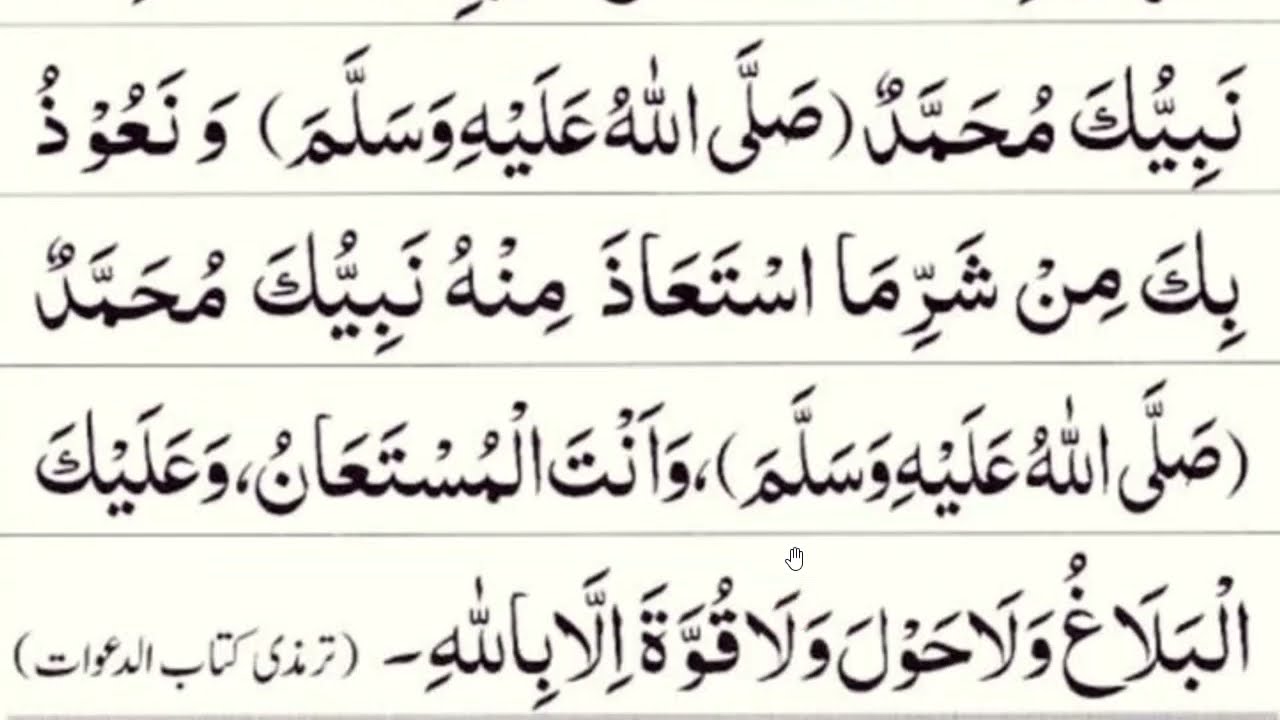 نَبِيُّكَ مُحَمَّدٌ (صَلَّى اللّٰهُ عَلَيْهِ وَسَلَّمَ) وَ نَعُوْذُ
بِكَ مِنْ شَرِّ مَا اسْتَعَاذَ مِنْهُ نَبِيُّكَ مُحَمَّدٌ
(صَلَّى اللّٰهُ عَلَيْهِ وَسَلَّمَ)، وَاَنْتَ الْمُسْتَعَانُ، وَعَلَيْكَ
الْبَلَاغُ وَلَا حَوْلَ وَلَا قُوَّةَ اِلَّا بِاللّٰهِ۔ (ترمذی کتاب الدعوات)